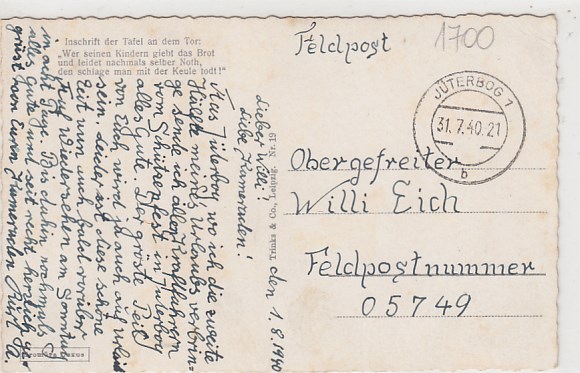 Inschrift der Tafel an dem Tor:
"Wer seinen Kindern giebt das Brot
und leidet nachmals selber Noth,
den schlage man mit der Keule todt!"
Feldpost
1700
JÜTERBOG 1
31.7.40.21
b
Obergefreiter
Willi Eich
Feldpostnummer
05749
Trinks & Co., Leipzig. Nr. 19
den 1.8.1940
Lieber Willi!
Liebe Kameraden!
Aus Jüterbog wo ich die zweite
Hälfte meines Urlaubes verbrin-
ge sende ich allen Kraftfahrern
vom Schützenfest in Jüterbog
alles Gute. Der größte Teil
von Euch wird ja auch auf Urlaub
sein, leider ist diese schöne
Zeit nun auch bald vorüber
Auf Wiedersehen am Sonntag
in acht Tage. Bis dahin nochmals
alles Gute und seit recht herzlich ge-
grüßt von Euren Kameraden